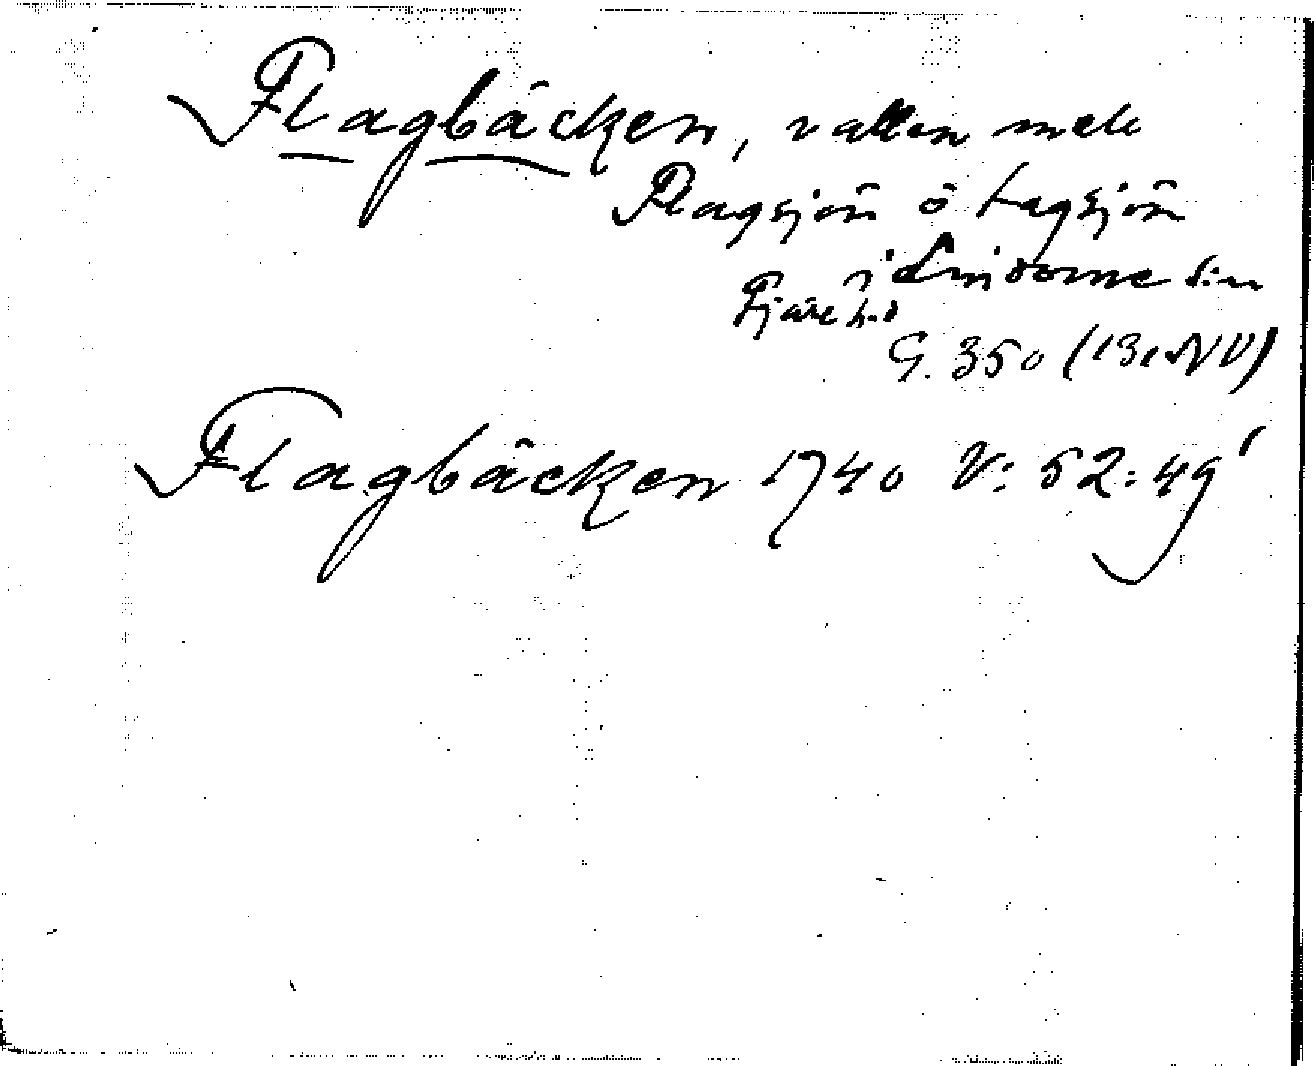 Flagbäcken, vatten mell
Flagsjön o Tagsjön
i Lindome sn
Fjäre hd
G. 350 (13 NV)
Flagbäcken 1740 V: 52: 49